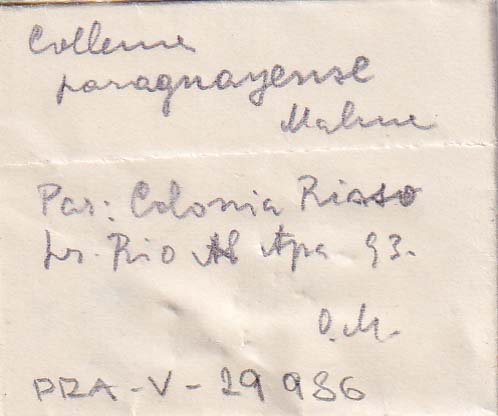 Collema
paraguayense
Malme
Par: Colonia Risso
pr. Rio Apa 93.
O.M.
PRA-V-29986